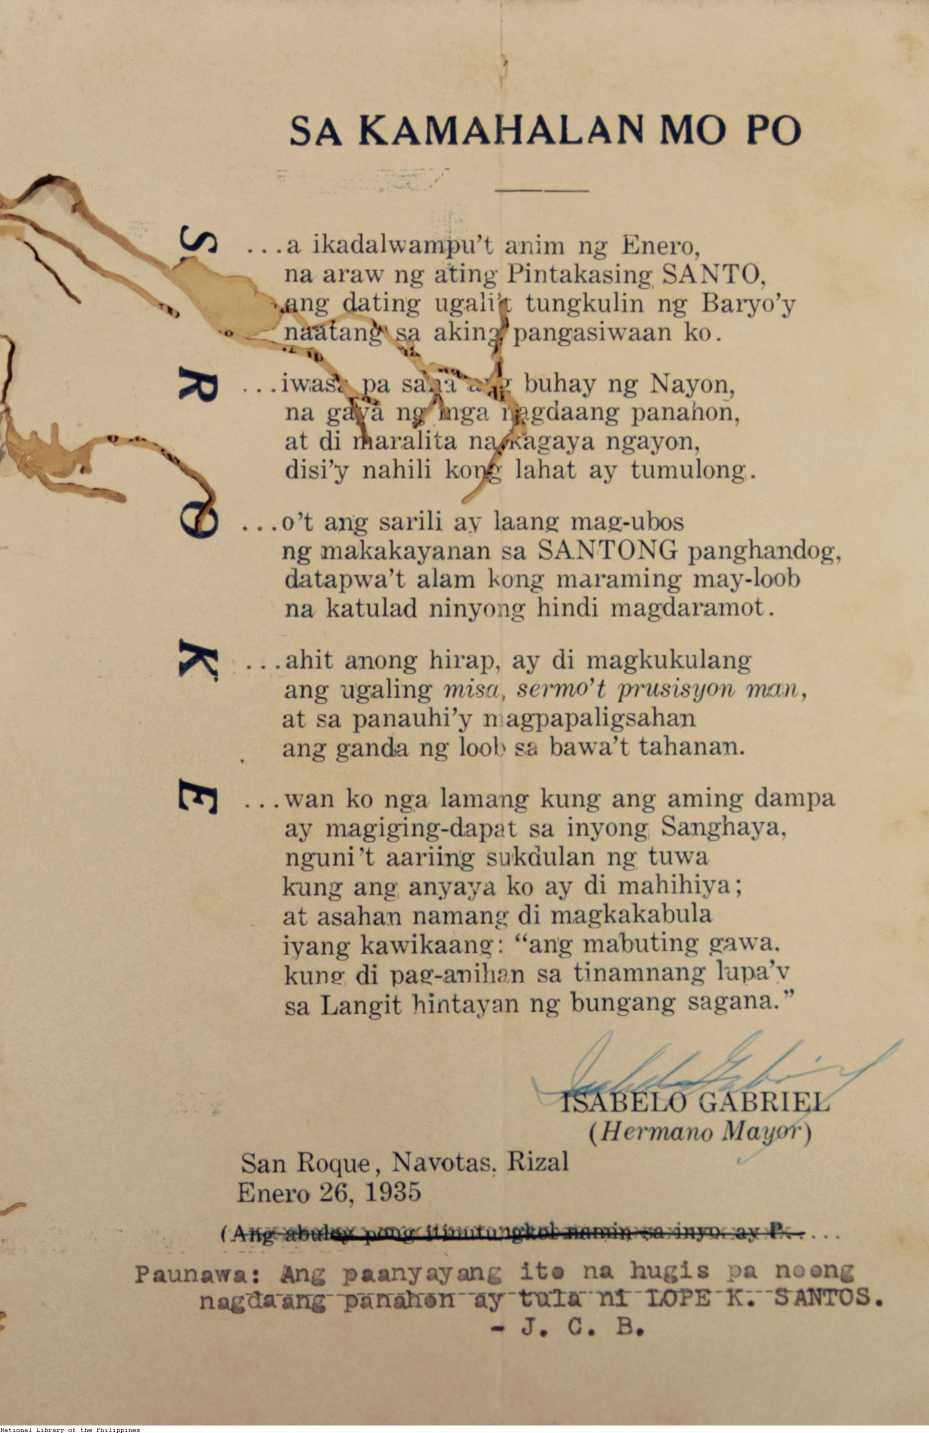 SA KAMAHALAN MO PO
S ...a ikadalwampu't anim ng Enero,
na araw ng ating Pintakasing SANTO,
ang dating ugali't tungkulin ng Baryo'y
naatang sa aking pangasiwaan ko.
R ...iwasa pa sana ang buhay ng Nayon,
na gaya ng mga nagdaang panahon,
at di maralita na kagaya ngayon,
disi'y nahili kong lahat ay tumulong.
O ...o't ang sarili ay laang mag-ubos
ng makakayanan sa SANTONG panghandog,
datapwa't alam kong maraming may-loob
na katulad ninyong hindi magdaramot.
K ...ahit anong hirap, ay di magkukulang
ang ugaling misa, sermo't prusisyon man,
at sa panauhi'y magpapaligsahan
ang ganda ng loob sa bawa't tahanan.
E ...wan ko nga lamang kung ang aming dampa
ay magiging-dapat sa inyong Sanghaya,
nguni't aariing sukdulan ng tuwa
kung ang anyaya ko ay di mahihiya;
at asahan namang di magkakabula
iyang kawikaang: "ang mabuting gawa,
kung di pag-anihan sa tinamnang lupa'y
sa Langit hintayan ng bungang sagana."
Isabelo Gabriel
ISABELO GABRIEL
(Hermano Mayor)
San Roque, Navotas, Rizal
Enero 26, 1935
(Ang abuloy pong itinutungkol namin sa inyo ay P.....
Paunawa: Ang paanyayang ito na hugis pa noong
nagdaang panahon ay tula ni LOPE K. SANTOS.
- J. C. B.
National Library of the Philippines